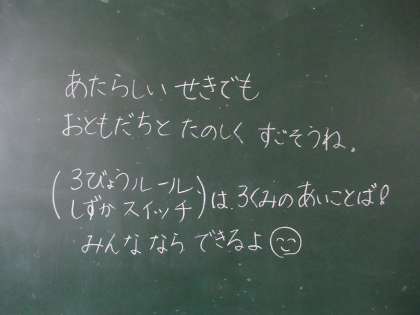 あたらしい せきでも
おともだちと たのしく すごそうね。
(3びょうルール
しずかスイッチ)は、3くみの あいことば!
みんななら できるよ